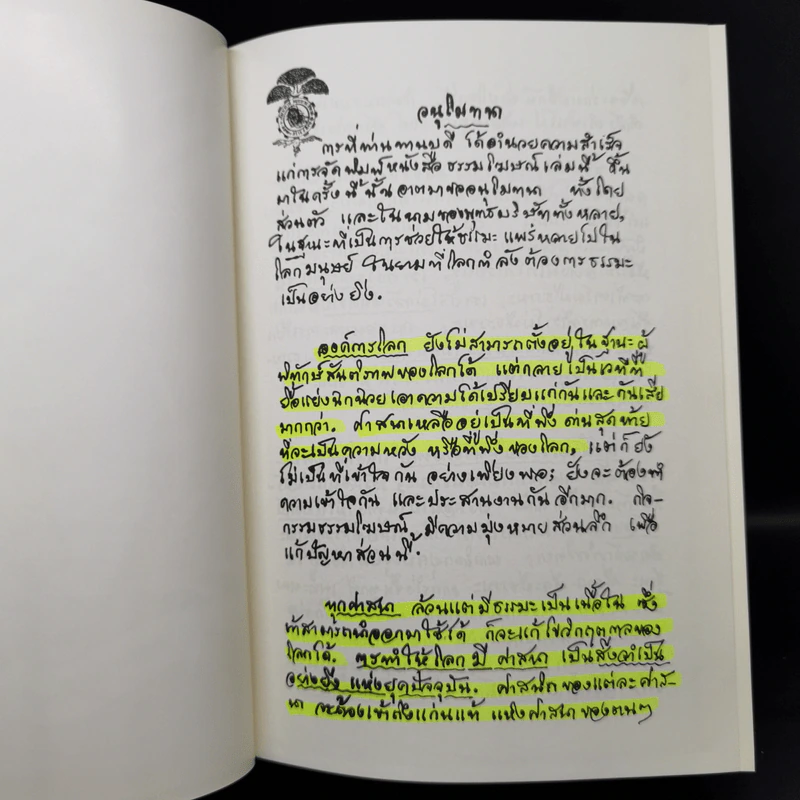 อนุโมทนา
การที่ท่านทานบดี ได้อำนวยความสำเร็จ
แก่การจัดพิมพ์หนังสือ ธรรมโฆษณ์ เล่มนี้ ขึ้น
มาในครั้งนี้นั้น อาตมาขออนุโมทนา ทั้งโดย
ส่วนตัว และในนามของพุทธบริษัททั้งหลาย,
ในฐานะที่เป็นการช่วยให้ธรรมะ แพร่หลายไปใน
โลกมนุษย์ ในยามที่โลกกำลังต้องการธรรมะ
เป็นอย่างยิ่ง.
องค์การโลก ยังไม่สามารถตั้งอยู่ในฐานะผู้
พิทักษ์สันติภาพของโลกได้ แต่กลายเป็นเวทีที่
ยื้อแย่งฉกฉวยเอาความได้เปรียบแก่กันและกันเสีย
มากกว่า. ศาสนาเหลืออยู่เป็นที่พึ่ง ด่านสุดท้าย
ที่จะเป็นความหวัง หรือที่พึ่งของโลก, แต่ก็ยัง
ไม่เป็นที่เข้าใจกัน อย่างเพียงพอ; ยังจะต้องทำ
ความเข้าใจกัน และประสานงานกันอีกมาก. กิจ-
กรรมธรรมโฆษณ์ มีความมุ่งหมายส่วนลึก เพื่อ
แก้ปัญหาส่วนนี้.
ทุกศาสนา ล้วนแต่มีธรรมะเป็นเนื้อใน ซึ่ง
ถ้าสามารถนำออกมาใช้ได้ ก็จะแก้ไขวิกฤตกาลของ
โลกได้. การทำให้โลกมีศาสนา เป็นสิ่งจำเป็น
อย่างยิ่ง แห่งยุคปัจจุบัน. ศาสนิกของแต่ละศาส-
นา จะต้องเข้าถึงแก่นแท้ แห่งศาสนาของตนๆ